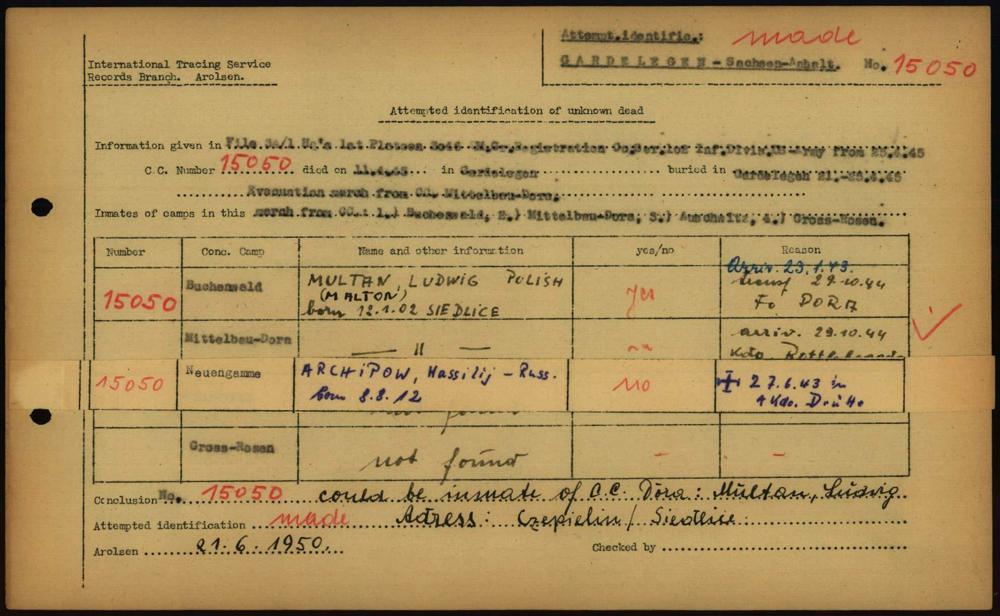 Attempt.identific.: made
International Tracing Service
GARDELEGEN - Sachsen-Anhalt. No. 15050
Records Branch. Arolsen.
Attempted identification of unknown dead
Information given in File from
C.C. Number 15050 died on 11.4.45 in Gardelegen buried in Gardelegen
Evacuation march from CC. Mittelbau-Dora.
Inmates of camps in this march from CC.: 1.) Buchenwald, 2.) Mittelbau-Dora, 3.) Auschwitz, 4.) Gross-Rosen.
Number Conc. Camp Name and other information yes/no Reason
Arriv. 23.1.43.
15050 Buchenwald MULTAN, LUDWIG POLISH yes transf 29.10.44
(MALTON) To DORA
born 12.1.02 SIEDLICE
Mittelbau-Dora — " — arriv. 29.10.44
Kdo.
15050 Neuengamme ARCHiPOW, Wassilij - Russ. no 27.6.43 in
born 8.8.12 Kdo. Drütte
Gross-Rosen not found - -
Conclusion No. 15050 could be inmate of C.C. Dora: Multan, Ludwig
Attempted identification made Adress: / Siedlice
Arolsen 21.6.1950. Checked by